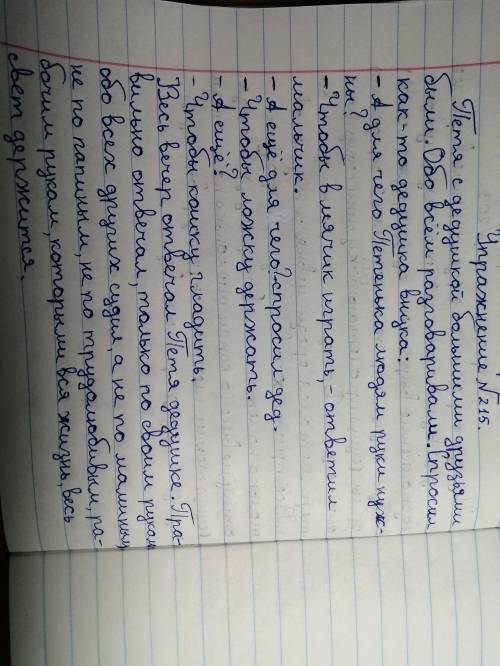 Упражнение №215.
Петя с дедушкой большими друзьями
были. Обо всём разговаривали. Спросил
как-то дедушка внука:
- А для чего Петенька людям руки нуж-
ны?
- Чтобы в мячик играть, - ответил
мальчик.
- А ещё для чего?-спросил дед.
- Чтобы ложку держать.
- А ещё?
- Чтобы кошку гладить.
Весь вечер отвечал Петя дедушке. Пра-
вильно отвечал, только по своим рукам
обо всех других судил, а не по маминым,
не по папиным, не по трудолюбивым, ра-
бочим рукам, которыми вся жизнь, весь
свет держится.